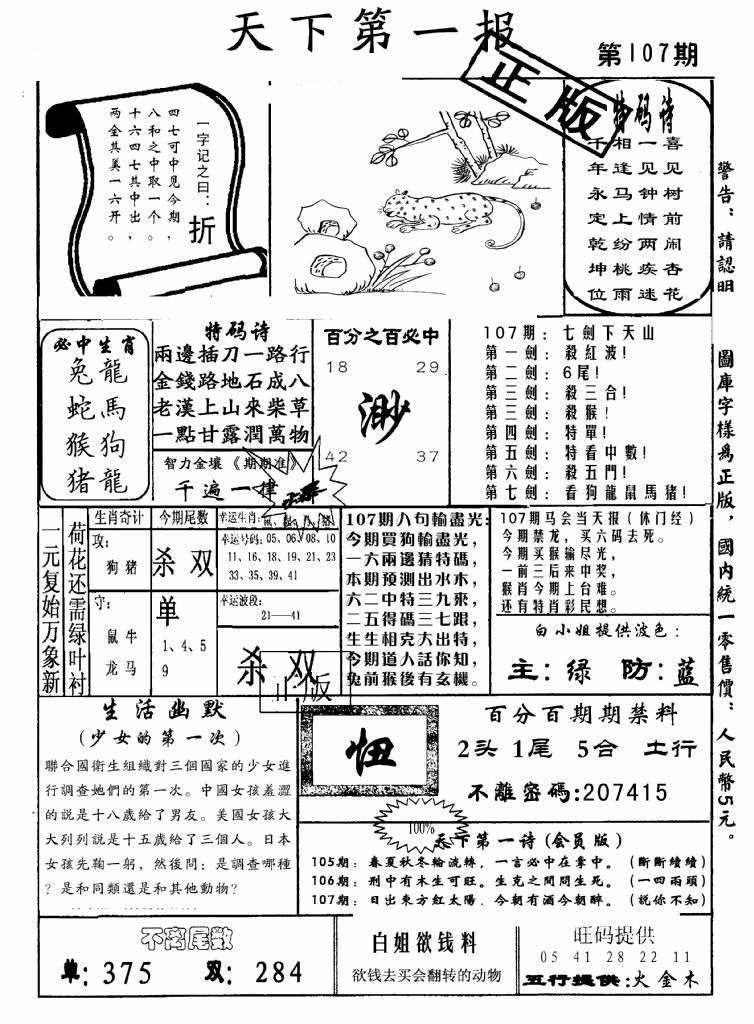 天下第一报
第107期
正版
一字记之曰：折
四七可中见今期，
八和之中取一个。
十六四七其中出，
两全其美一六开。
特码诗
喜见树前闹杏花
一见钟情两疾迷
相逢马上纷桃雨
千年永定乾坤位
警告：請認明圖庫字樣爲正版，國內統一零售價：人民幣5元。
必中生肖
兔龍
蛇馬
猴狗
猪龍
特码诗
兩邊插刀一路行
金錢路地石成八
老漢上山來柴草
一點甘露潤萬物
智力金壤《期期准》
千遍一律
百分之百必中
18 29
渺
42 37
107期：七劍下天山
第一劍：殺紅波！
第二劍：6尾！
第三劍：殺三合！
第三劍：殺猴！
第四劍：特單！
第五劍：特看中數！
第六劍：殺五門！
第七劍：看狗龍鼠馬猪！
一元复始万象新
荷花还需绿叶衬
生肖奇计
攻：
狗猪
守：
鼠牛
龙马
今期尾数
杀双
单
1、4、5
9
幸运生肖：
幸运号码：05、06、08、10
11、16、18、19、21、23
33、35、39、41
幸运波段：
21——41
杀双
正版
107期八句輸盡光：
今期買狗輸盡光，
一六兩邊猜特碼，
本期預測出水木，
六二中特三九來，
二五得碼三七跟，
生生相克大出特，
今期道人話你知，
兔前猴後有玄機。
107期马会当天报（休门经）
今期禁龙，买六码去死。
今期买猴输尽光，
一前三后来中奖，
猴肖今期上台难。
还有特肖彩民想。
白小姐提供波色：
主：绿 防：蓝
生活幽默
(少女的第一次)
聯合國衛生組織對三個國家的少女進
行調查她們的第一次。中國女孩羞澀
的說是十八歲给了男友。美國女孩大
大列列説是十五歲给了三個人。日本
女孩先鞠一躬，然後問：是調查哪種
？是和同類還是和其他動物?
忸
百分百期期禁料
2头 1尾 5合 土行
不離密碼:207415
100%
天下第一诗(会员版)
105期：春夏秋冬輪流轉，一言必中在掌中。（斷斷續續）
106期：刑中有木生可旺。生克之間問生死。（一四兩頭）
107期：日出東方紅太陽．今朝有酒今朝醉。（說你不知）
不离尾数
单：375 双：284
白姐欲钱料
欲钱去买会翻转的动物
旺码提供
05 41 28 22 11
五行提供:火金木